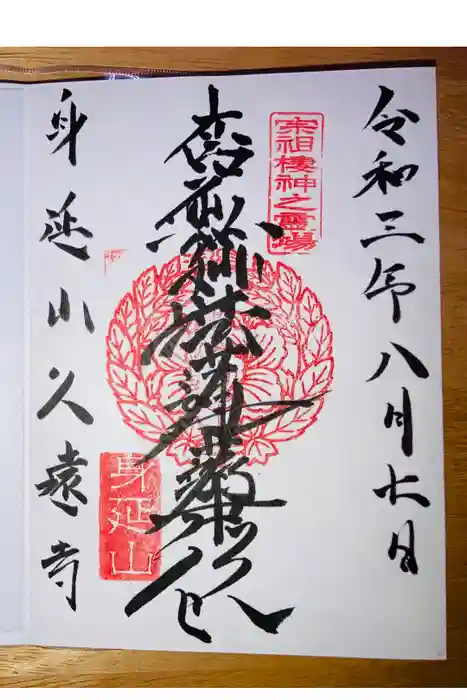 令和三年八月 日
宗祖棲神之霊場
南無妙法蓮華経
身延山久遠寺
身延山